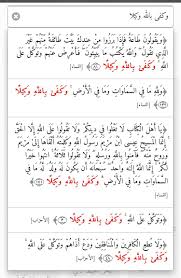 وكفى بالله وكيلا
﴿وَيَقُولُونَ طَاعَةٌ فَإِذَا بَرَزُوا مِنْ عِندِكَ بَيَّتَ طَائِفَةٌ مِنْهُمْ غَيْرَ
الَّذِي تَقُولُ وَاللَّهُ يَكْتُبُ مَا يُبَيِّتُونَ فَأَعْرِضْ عَنْهُمْ وَتَوَكَّلْ عَلَى
اللَّهِ وَكَفَىٰ بِاللَّهِ وَكِيلًا ﴿٨١﴾﴾ (النساء)
﴿وَلِلَّهِ مَا فِي السَّمَاوَاتِ وَمَا فِي الْأَرْضِ وَكَفَىٰ بِاللَّهِ وَكِيلًا
﴿١٣٢﴾﴾ (النساء)
﴿يَا أَهْلَ الْكِتَابِ لَا تَغْلُوا فِي دِينِكُمْ وَلَا تَقُولُوا عَلَى اللَّهِ إِلَّا الْحَقَّ
إِنَّمَا الْمَسِيحُ عِيسَى ابْنُ مَرْيَمَ رَسُولُ اللَّهِ وَكَلِمَتُهُ أَلْقَاهَا إِلَىٰ مَرْيَمَ
وَرُوحٌ مِنْهُ فَآمِنُوا بِاللَّهِ وَرُسُلِهِ وَلَا تَقُولُوا ثَلَاثَةٌ انتَهُوا خَيْرًا
لَكُمْ إِنَّمَا اللَّهُ إِلَٰهٌ وَاحِدٌ سُبْحَانَهُ أَن يَكُونَ لَهُ وَلَدٌ لَهُ مَا فِي
السَّمَاوَاتِ وَمَا فِي الْأَرْضِ وَكَفَىٰ بِاللَّهِ وَكِيلًا ﴿١٧١﴾﴾ (النساء)
﴿وَتَوَكَّلْ عَلَى اللَّهِ وَكَفَىٰ بِاللَّهِ وَكِيلًا ﴿٣﴾﴾ (الأحزاب)
﴿وَلَا تُطِعِ الْكَافِرِينَ وَالْمُنَافِقِينَ وَدَعْ أَذَاهُمْ وَتَوَكَّلْ عَلَى اللَّهِ
وَكَفَىٰ بِاللَّهِ وَكِيلًا ﴿٤٨﴾﴾ (الأحزاب)